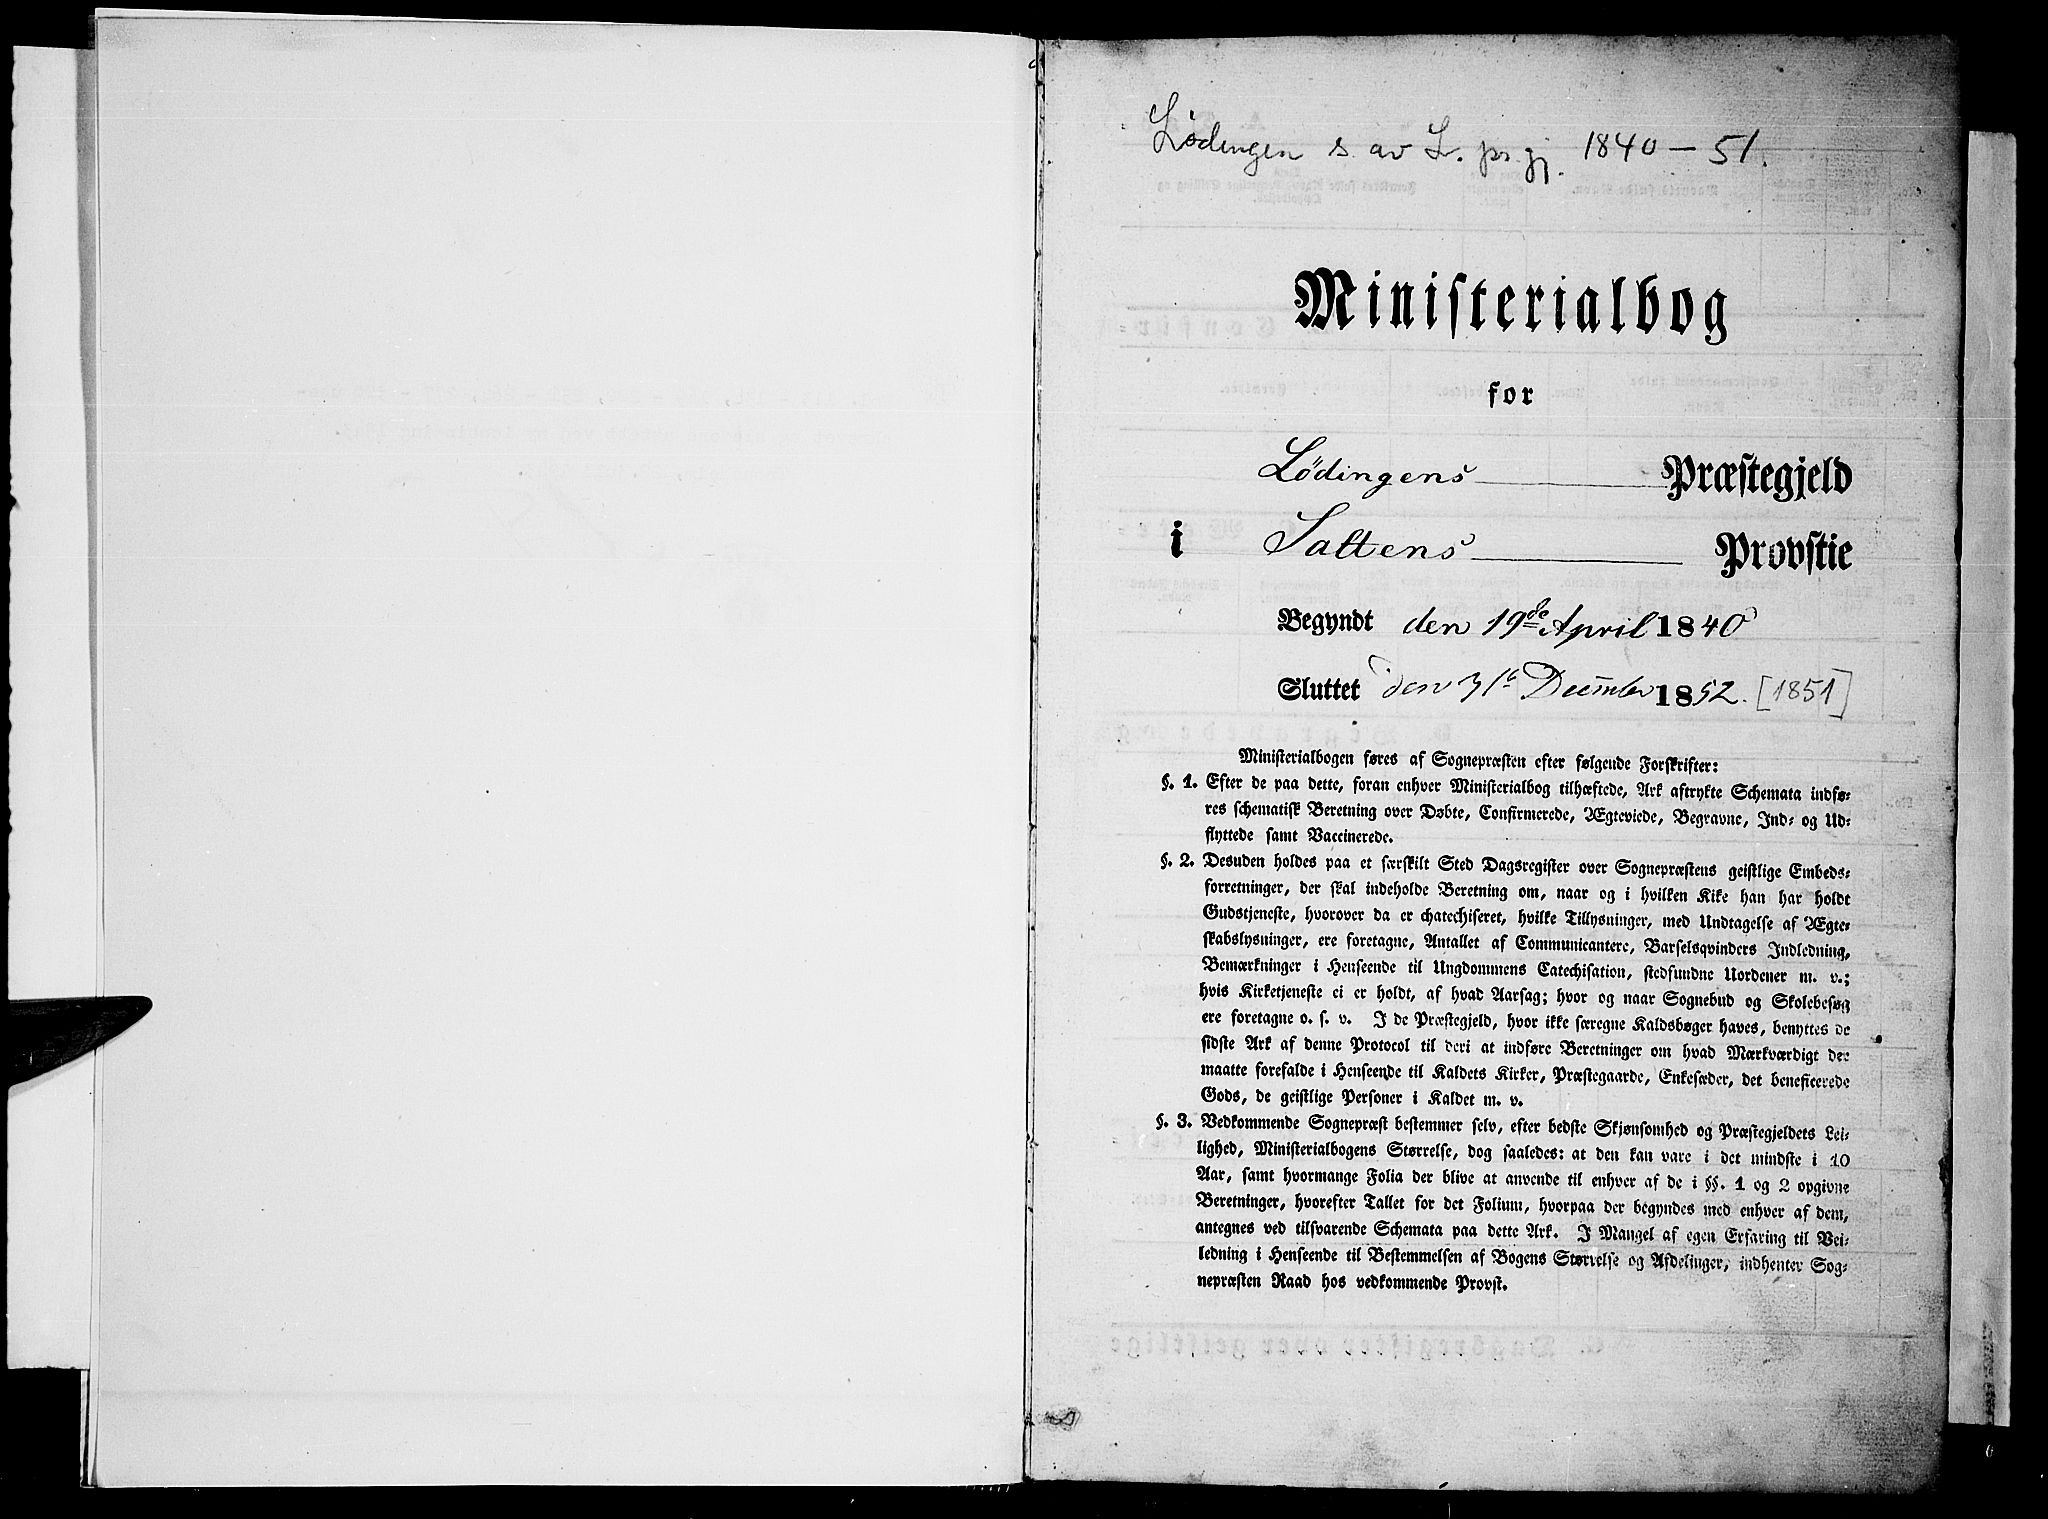 Lödingen s. av L. pr.gj. 1840 – 51.
Ministerialbog
for
Lödingens Præstegjeld
i Saltens Provstie
Begyndt den 19de April 1840
Sluttet den 31te December 1852. [1851]
Ministerialbogen føres af Sognepræsten efter følgende Forskrifter:
§. 1. Efter de paa dette, foran enhver Ministerialbog tilhæftede, Ark aftrykte Schemata indfø-
res schematisk Beretning over Døbte, Confirmerede, Ægteviede, Begravne, Ind- og Ud-
flyttede samt Vaccinerede.
§. 2. Desuden holdes paa et særskilt Sted Dagsregister over Sognepræstens geistlige Embeds-
forretninger, der skal indeholde Beretning om, naar og i hvilken Kike han har holdt
Gudstjeneste, hvorover da er chatechiseret, hvilke Tillysninger, med Undtagelse af Ægte-
skabslysninger, ere foretagne, Antallet af Communicantere, Barselsqvinders Indledning,
Bemærkninger i Henseende til Ungdommens Catechisation, stedfundne Uordener m. v.;
hvis Kirketjeneste ei er holdt, af hvad Aarsag; hvor og naar Sognebud og Skolebesøg
ere foretagne o. s. v. I de Præstegjeld, hvor ikke særegne Kaldsbøger haves, benyttes de
sidste Ark af denne Protocol til deri at indføre Beretninger om hvad Mærkværdigt der
maatte forefalde i Henseende til Kaldets Kirker, Præstegaarde, Enkesæder, det beneficerede
Gods, de geistlige Personer i Kaldet m. v.
§. 3. Vedkommende Sognepræst bestemmer selv, efter bedste Skjønsomhed og Præstegjeldets Lei-
lighed, Ministerialbogens Størrelse, dog saaledes: at den kan vare i det mindste i 10
Aar, samt hvormange Folia der blive at anvende til enhver af de i §§. 1 og 2 opgivne
Beretninger, hvorefter Tallet for det Folium, hvorpaa der begyndes med enhver af dem,
antegnes ved tilsvarende Schemata paa dette Ark. I Mangel af egen Erfaring til Vei-
ledning i Henseende til Bestemmelsen af Bogens Størrelse og Afdelinger, indhenter Sog-
nepræsten Raad hos vedkommende Provst.